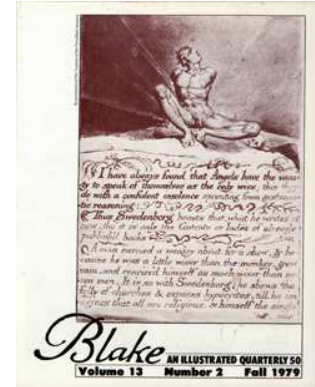 I have always found that Angels have the vani-
ty to speak of themselves as the only wise; this they
do with a confident insolence sprouting from systema-
tic reasoning:
Thus Swedenborg boasts that what he writes is
new; tho' it is only the Contents or Index of already
publish'd books
A man carried a monkey about for a shew, & be-
cause he was a little wiser than the monkey, grew
vain, and conciev'd himself as much wiser than se-
ven men. It is so with Swedenborg; he shews the
folly of churches & exposes hypocrites, till he im-
agines that all are religious, & himself the single
Blake AN ILLUSTRATED QUARTERLY 50
Volume 13 Number 2 Fall 1979